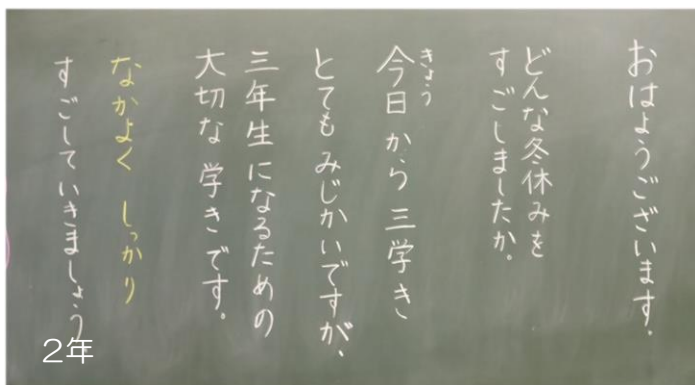 おはようございます。
どんな冬休みを
すごしましたか。
きょう
今日から三学き
とてもみじかいですが、
三年生になるための
大切な学きです。
なかよく しっかり
すごしていきましょう
2年